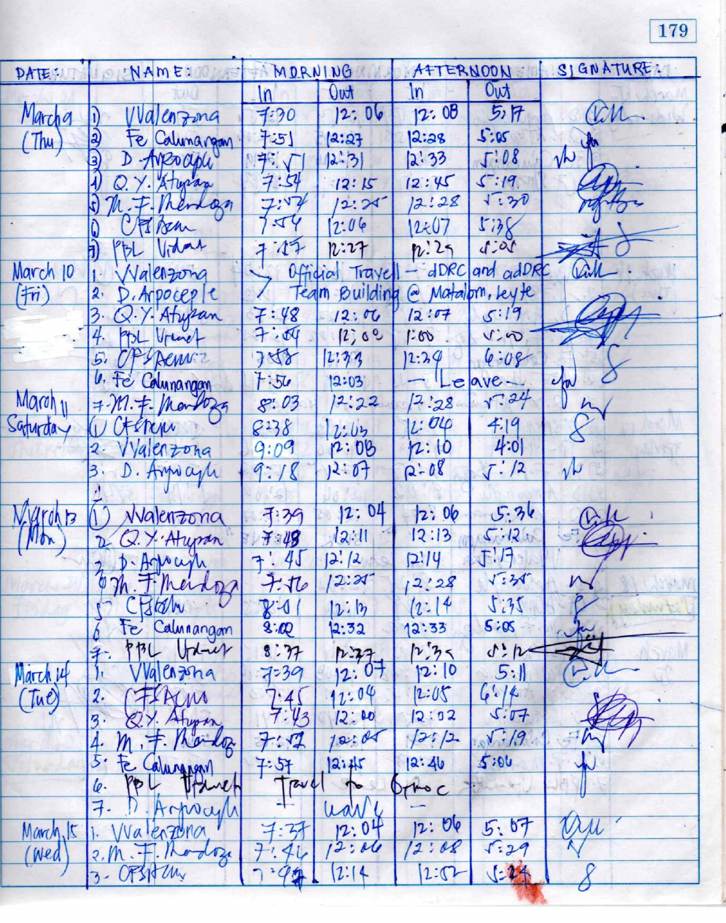 179
DATE: NAME: MORNING AFTERNOON SIGNATURE:
In Out In Out
March 9 1) VValenzona 7:30 12:06 12:08 5:17
(Thu) 2) Fe Calunangan 7:51 12:27 12:28 5:05
3) D. Arpoceple 7:51 12:31 12:33 5:08
4) Q.Y. Atupan 7:54 12:15 12:45 5:19
5) M.F. Mendoza 12:25 12:28 5:30
6) 7:56 12:06 12:07 5:38
7) PBL 7:57 12:27 12:29 5:05
March 10 1. VValenzona Official Travel - dDRC and adDRC
(Fri) 2. D. Arpoceple Team Building @ Matalom, Leyte
3. Q.Y. Atupan 7:48 12:06 12:07 5:19
4. PBL 7:04 12:02 1:00 5:00
5. 7:58 12:33 12:34 6:08
6. Fe Calunangan 7:56 12:03 - Leave -
March 11 7. M.F. Mendoza 8:03 12:22 12:28 5:24
Saturday 1) 8:38 12:03 12:04 4:19
2. VValenzona 9:09 12:08 12:10 4:01
3. D. Arpoceple 9:18 12:07 12:08 5:12
March 13 1) VValenzona 7:39 12:04 12:06 5:36
(Mon) 2 Q.Y. Atupan 7:43 12:11 12:13 5:12
3 D. Arpoceple 7:45 12:12 12:14 5:17
4 M.F. Mendoza 7:56 12:25 12:28 5:35
5 8:01 12:13 12:14 5:35
6 Fe Calunangan 8:02 12:32 12:33 5:05
7. PBL 8:37 12:37 12:39 5:12
March 14 1. VValenzona 7:39 12:07 12:10 5:11
(Tue) 2. 7:45 12:04 12:05 6:14
3. Q.Y. Atupan 7:43 12:00 12:02 5:07
4. M.F. Mendoza 7:52 12:05 12:12 5:19
5. Fe Calunangan 7:57 12:45 12:46 5:06
6. PBL Travel to Ormoc
7. D. Arpoceple - Leave -
March 15 1. VValenzona 7:37 12:04 12:06 5:07
(Wed) 2. M.F. Mendoza 7:46 12:06 12:08 5:29
3. 12:14 12:52